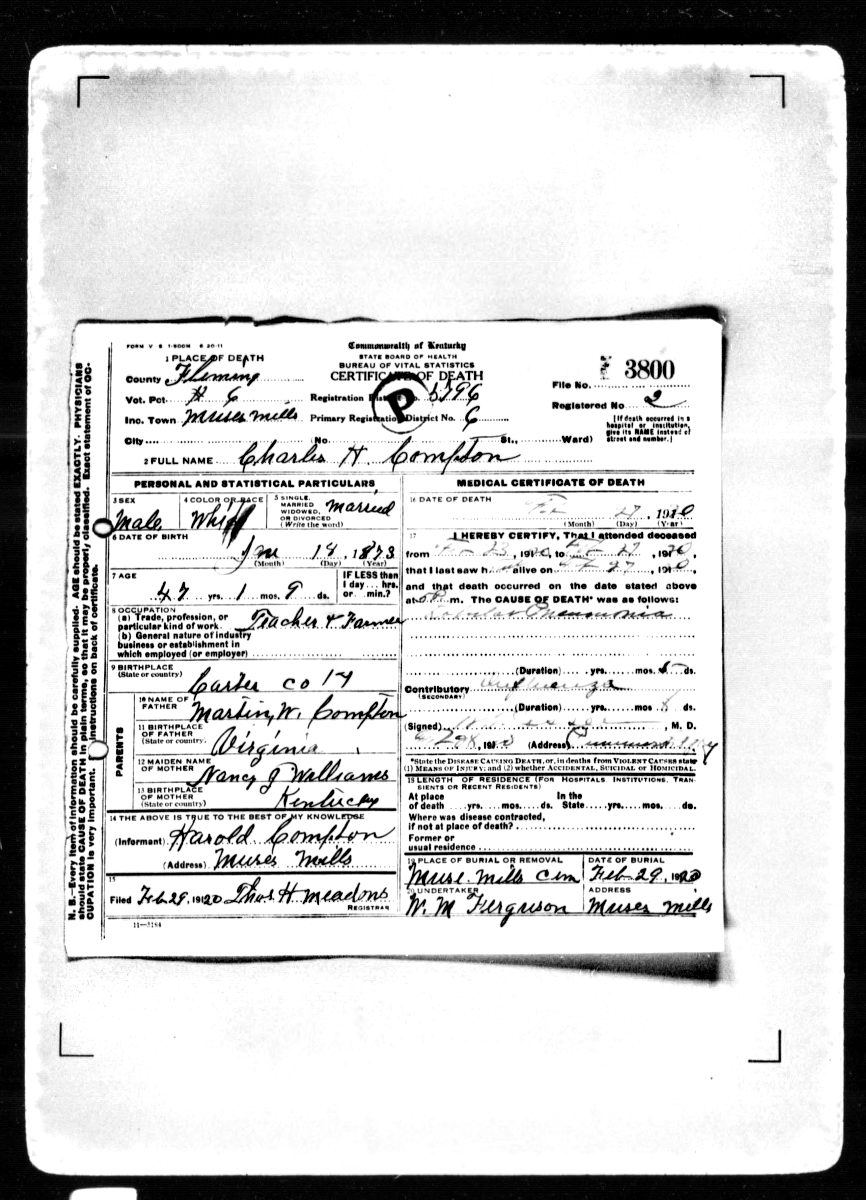 FORM V S 1-500M 6 20-11
Commonwealth of Kentucky
STATE BOARD OF HEALTH
BUREAU OF VITAL STATISTICS
CERTIFICATE OF DEATH
1 PLACE OF DEATH
County Fleming
Vot. Pct. # 6
Inc. Town Muses Mills
City .... (No. .... St., .... Ward)
Registration District No.
Primary Registration District No. 6
P
File No. 3800
Registered No. 2
[If death occurred in a
hospital or institution,
give its NAME instead of
street and number.]
2 FULL NAME Charles H Compton
PERSONAL AND STATISTICAL PARTICULARS
3 SEX
Male
4 COLOR OR RACE
White
5 SINGLE,
MARRIED
WIDOWED,
OR DIVORCED
(Write the word)
Married
6 DATE OF BIRTH
Jan 18, 1873
(Month) (Day) (Year)
7 AGE
47 yrs. 1 mos. 9 ds.
IF LESS than
1 day... hrs.
or... min.?
8 OCCUPATION
(a) Trade, profession, or
particular kind of work. Teacher & Farmer
(b) General nature of industry
business or establishment in
which employed (or employer)
9 BIRTHPLACE
(State or country)
Carter Co Ky
PARENTS
10 NAME OF
FATHER
Martin W. Compton
11 BIRTHPLACE
OF FATHER
(State or country.
Virginia
12 MAIDEN NAME
OF MOTHER
Nancy J Williams
13 BIRTHPLACE
OF MOTHER
(State or country)
Kentucky
14 THE ABOVE IS TRUE TO THE BEST OF MY KNOWLEDGE
(Informant) Harold Compton
(Address) Muses Mills
15
Filed Feb 29, 19120 Thos H Meadons
REGISTRAR
11-3184
MEDICAL CERTIFICATE OF DEATH
16 DATE OF DEATH
27, 1920
(Month) (Day) (Year)
17
I HEREBY CERTIFY, That I attended deceased
from 23, 1920, to 27, 1920,
that I last saw h alive on 27, 1920,
and that death occurred on the date stated above
at m. The CAUSE OF DEATH* was as follows:
Lobular Pneumonia
(Duration) yrs. mos. 5 ds.
Contributory Influenza
(SECONDARY)
(Duration) yrs. mos. 8 ds.
(Signed) , M. D.
(Address)
*State the DISEASE CAUSING DEATH, or, in deaths from VIOLENT CAUSES state
(1) MEANS OF INJURY; and (2) whether ACCIDENTAL, SUICIDAL or HOMICIDAL.
18 LENGTH OF RESIDENCE (FOR HOSPITALS, INSTITUTIONS, TRAN-
SIENTS OR RECENT RESIDENTS)
At place
of death .... yrs. .... mos. .... ds.
In the
State .... yrs. .... mos. .... ds.
Where was disease contracted,
if not at place of death?
Former or
usual residence
19 PLACE OF BURIAL OR REMOVAL
Muse Mills Cem
DATE OF BURIAL
Feb 29, 1920
20 UNDERTAKER
W. M Ferguson
ADDRESS
Muses Mills
N. B.-Every item of information should be carefully supplied. AGE should be stated EXACTLY. PHYSICIANS
should state CAUSE OF DEATH in plain terms, so that it may be properly classified. Exact statement of OC-
CUPATION is very important. Instructions on back of certificate.